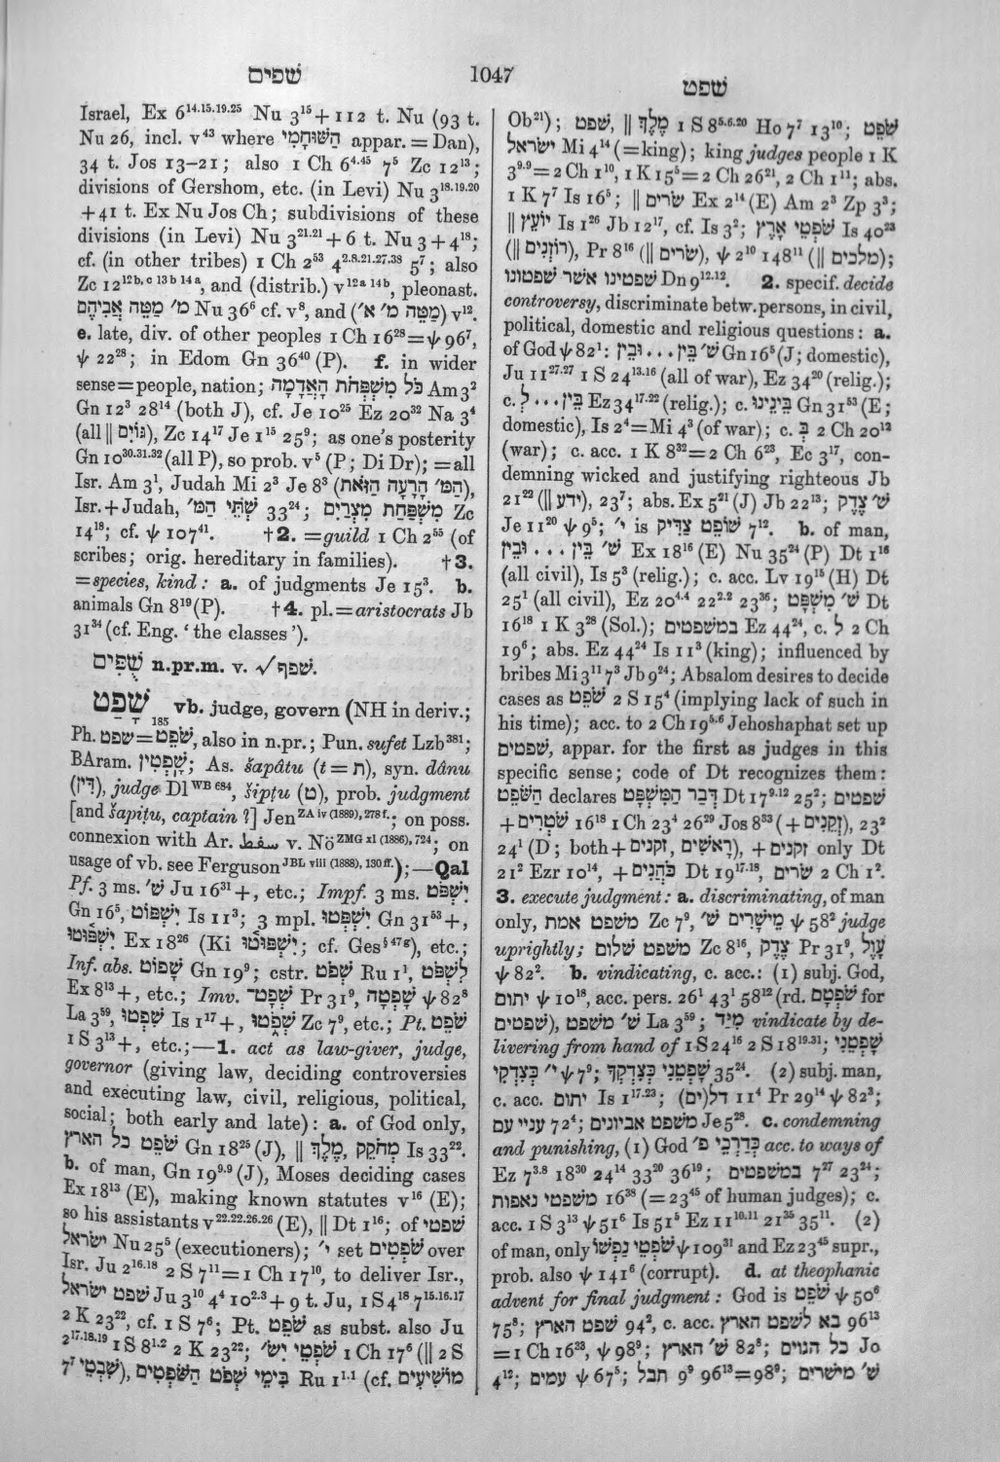 שפים
1047
שפט
Israel, Ex 6¹⁴·¹⁵·¹⁹·²⁵ Nu 3¹⁵ + 112 t. Nu (93 t.
Nu 26, incl. v⁴³ where הַשּׁוּחָמִי appar. = Dan),
34 t. Jos 13–21; also 1 Ch 6⁴·⁴⁵ 7⁵ Zc 12¹³;
divisions of Gershom, etc. (in Levi) Nu 3¹⁸·¹⁹·²⁰
+ 41 t. Ex Nu Jos Ch; subdivisions of these
divisions (in Levi) Nu 3²¹·²¹ + 6 t. Nu 3 + 4¹⁸;
cf. (in other tribes) 1 Ch 2⁵³ 4²·⁸·²¹·²⁷·³⁸ 5⁷; also
Zc 12¹²ᵇ·ᶜ ¹³ᵇ ¹⁴ᵃ, and (distrib.) v¹²ᵃ ¹⁴ᵇ, pleonast.
מִשְׁפַּחַת מ׳ מַטֵּה אֲבִיהֶם Nu 36⁶ cf. v⁸, and (מַטֵּה מ׳ א׳) v¹².
e. late, div. of other peoples 1 Ch 16²⁸ = ψ 96⁷,
ψ 22²⁸; in Edom Gn 36⁴⁰ (P). f. in wider
sense = people, nation; כֹּל מִשְׁפְּחֹת הָאֲדָמָה Am 3²
Gn 12³ 28¹⁴ (both J), cf. Je 10²⁵ Ez 20³² Na 3⁴
(all || גּוֹיִם), Zc 14¹⁷ Je 1¹⁵ 25⁹; as one's posterity
Gn 10³⁰·³¹·³² (all P), so prob. v⁵ (P; Di Dr); = all
Isr. Am 3¹, Judah Mi 2³ Je 8³ (הַמּ׳ הָרָעָה הַזֹּאת),
Isr. + Judah, שְׁתֵּי הַמִּ׳ 33²⁴; מִשְׁפַּחַת מִצְרַיִם Zc
14¹⁸; cf. ψ 107⁴¹. †2. = guild 1 Ch 2⁵⁵ (of
scribes; orig. hereditary in families). †3.
= species, kind: a. of judgments Je 15³. b.
animals Gn 8¹⁹ (P). †4. pl. = aristocrats Jb
31³⁴ (cf. Eng. ‘the classes’).
שֻׁפִּים n.pr.m. v. √שפף.
שָׁפַט 185 vb. judge, govern (NH in deriv.;
Ph. שפט = שֹׁפֵט, also in n.pr.; Pun. sufet Lzb³⁸¹;
BAram. שָׁפְטִין; As. šapâtu (t = ת), syn. dânu
(דין), judge Dl ᵂᴮ ⁶⁸⁴, šipṭu (ט), prob. judgment
[and šapiṭu, captain ?] Jen ᶻᴬ ⁱᵛ ⁽¹⁸⁸⁹⁾, ²⁷⁸ ᶠ·; on poss.
connexion with Ar. سفط v. Nö ᶻᴹᴳ ˣˡ ⁽¹⁸⁸⁶⁾, ⁷²⁴; on
usage of vb. see Ferguson ᴶᴮᴸ ᵛⁱⁱⁱ ⁽¹⁸⁸⁸⁾, ¹³⁰ ᶠᶠ·);—Qal
Pf. 3 ms. שׁ׳ Ju 16³¹ +, etc.; Impf. 3 ms. יִשְׁפֹּט
Gn 16⁵, יִשְׁפּוֹט Is 11³; 3 mpl. יִשְׁפְּטוּ Gn 31⁵³ +,
יִשְׁפּוּטוּ Ex 18²⁶ (Ki יִשְׁפּוֹטוּ; cf. Ges §⁴⁷ᵍ), etc.;
Inf. abs. שָׁפוֹט Gn 19⁹; cstr. שְׁפֹט Ru 1¹, לִשְׁפֹּט
Ex 8¹³ +, etc.; Imv. שְׁפָט־ Pr 31⁹, שָׁפְטָה ψ 82⁸
La 3⁵⁹, שִׁפְטוּ Is 1¹⁷ +, שְׁפֹטוּ Zc 7⁹, etc.; Pt. שֹׁפֵט
1 S 3¹³ +, etc.;—1. act as law-giver, judge,
governor (giving law, deciding controversies
and executing law, civil, religious, political,
social; both early and late): a. of God only,
שֹׁפֵט כל הארץ Gn 18²⁵ (J), || מֶלֶךְ, מְחֹקֵק Is 33²².
b. of man, Gn 19⁹·⁹ (J), Moses deciding cases
Ex 18¹³ (E), making known statutes v¹⁶ (E);
so his assistants v²²·²²·²⁶·²⁶ (E), || Dt 1¹⁶; of שפטי
ישראל Nu 25⁵ (executioners); י׳ set שֹׁפְטִים over
Isr. Ju 2¹⁶·¹⁸ 2 S 7¹¹ = 1 Ch 17¹⁰, to deliver Isr.,
שפט ישראל Ju 3¹⁰ 4⁴ 10²·³ + 9 t. Ju, 1 S 4¹⁸ 7¹⁵·¹⁶·¹⁷
2 K 23²², cf. 1 S 7⁶; Pt. שֹׁפֵט as subst. also Ju
2¹⁷·¹⁸·¹⁹ 1 S 8¹·² 2 K 23²²; שֹׁפְטֵי יש׳ 1 Ch 17⁶ (|| 2 S
7⁷ שִׁבְטֵי), בִּימֵי שְׁפֹט הַשֹּׁפְטִים Ru 1¹·¹ (cf. מוֹשִׁיעִים
Ob²¹); שפט, || מֶלֶךְ 1 S 8⁵·⁶·²⁰ Ho 7⁷ 13¹⁰; שֹׁפֵט
ישראל Mi 4¹⁴ (= king); king judges people 1 K
3⁹·⁹ = 2 Ch 1¹⁰, 1 K 15⁵ = 2 Ch 26²¹, 2 Ch 1¹¹; abs.
1 K 7⁷ Is 16⁵; || שׂרים Ex 2¹⁴ (E) Am 2³ Zp 3³;
|| יוֹעֵץ Is 1²⁶ Jb 12¹⁷, cf. Is 3²; שֹׁפְטֵי אֶרֶץ Is 40²³
(|| רוֹזְנִים), Pr 8¹⁶ (|| שׂרים), ψ 2¹⁰ 148¹¹ (|| מלכים);
שפטינו אשר שפטונו Dn 9¹²·¹². 2. specif. decide
controversy, discriminate betw. persons, in civil,
political, domestic and religious questions: a.
of God ψ 82¹: שׁ׳ בֵּין . . . וּבֵין Gn 16⁵ (J; domestic),
Ju 11²⁷·²⁷ 1 S 24¹³·¹⁶ (all of war), Ez 34²⁰ (relig.);
c. בֵּין . . . לְ Ez 34¹⁷·²² (relig.); c. בֵּינֵינוּ Gn 31⁵³ (E;
domestic), Is 2⁴ = Mi 4³ (of war); c. בְּ 2 Ch 20¹²
(war); c. acc. 1 K 8³² = 2 Ch 6²³, Ec 3¹⁷, con-
demning wicked and justifying righteous Jb
21²² (|| ידע), 23⁷; abs. Ex 5²¹ (J) Jb 22¹³; שׁ׳ צֶדֶק
Je 11²⁰ ψ 9⁵; י׳ is שׁוֹפֵט צַדִּיק 7¹². b. of man,
שׁ׳ בֵּין . . . וּבֵין Ex 18¹⁶ (E) Nu 35²⁴ (P) Dt 1¹⁶
(all civil), Is 5³ (relig.); c. acc. Lv 19¹⁵ (H) Dt
25¹ (all civil), Ez 20⁴·⁴ 22²·² 23³⁶; שׁ׳ מִשְׁפָּט Dt
16¹⁸ 1 K 3²⁸ (Sol.); במשפטים Ez 44²⁴, c. לְ 2 Ch
19⁶; abs. Ez 44²⁴ Is 11³ (king); influenced by
bribes Mi 3¹¹ 7³ Jb 9²⁴; Absalom desires to decide
cases as שֹׁפֵט 2 S 15⁴ (implying lack of such in
his time); acc. to 2 Ch 19⁵·⁶ Jehoshaphat set up
שפטים, appar. for the first as judges in this
specific sense; code of Dt recognizes them:
הַשֹּׁפֵט declares דְּבַר הַמִּשְׁפָּט Dt 17⁹·¹² 25²; שפטים
+ שֹׁטְרִים 16¹⁸ 1 Ch 23⁴ 26²⁹ Jos 8³³ (+ זְקֵנִים), 23²
24¹ (D; both + זקנים, רָאשִׁים), + זקנים only Dt
21² Ezr 10¹⁴, + כֹּהֲנִים Dt 19¹⁷·¹⁸, שׂרים 2 Ch 1².
3. execute judgment: a. discriminating, of man
only, משפט אמת Zc 7⁹, שׁ׳ מֵישָׁרִים ψ 58² judge
uprightly; משפט שלום Zc 8¹⁶, צֶדֶק Pr 31⁹, עָוֶל
ψ 82². b. vindicating, c. acc.: (1) subj. God,
יתום ψ 10¹⁸, acc. pers. 26¹ 43¹ 58¹² (rd. שֹׁפְטָם for
שפטים), שׁ׳ משפט La 3⁵⁹; מִיַּד vindicate by de-
livering from hand of 1 S 24¹⁶ 2 S 18¹⁹·³¹; שָׁפְטֵנִי
י׳ כְּצִדְקִי ψ 7⁹; שָׁפְטֵנִי כְצִדְקְךָ 35²⁴. (2) subj. man,
c. acc. יתום Is 1¹⁷·²³; דל(ים) 11⁴ Pr 29¹⁴ ψ 82³;
עניי עם 72⁴; משפט אביונים Je 5²⁸. c. condemning
and punishing, (1) God כְּדַרְכֵי פ׳ acc. to ways of
Ez 7³·⁸ 18³⁰ 24¹⁴ 33²⁰ 36¹⁹; במשפטים 7²⁷ 23²⁴;
משפטי נאפות 16³⁸ (= 23⁴⁵ of human judges); c.
acc. 1 S 3¹³ ψ 51⁶ Is 51⁵ Ez 11¹⁰·¹¹ 21³⁵ 35¹¹. (2)
of man, only שֹׁפְטֵי נַפְשׁוֹ ψ 109³¹ and Ez 23⁴⁵ supr.,
prob. also ψ 141⁶ (corrupt). d. at theophanic
advent for final judgment: God is שֹׁפֵט ψ 50⁶
75⁸; שׁפט הארץ 94², c. acc. בא לשפט הארץ 96¹³
= 1 Ch 16³³, ψ 98⁹; שׁ׳ הארץ 82⁸; כל הגוים Jo
4¹²; עמים ψ 67⁵; תבל 9⁹ 96¹³ = 98⁹; שׁ׳ מישרים